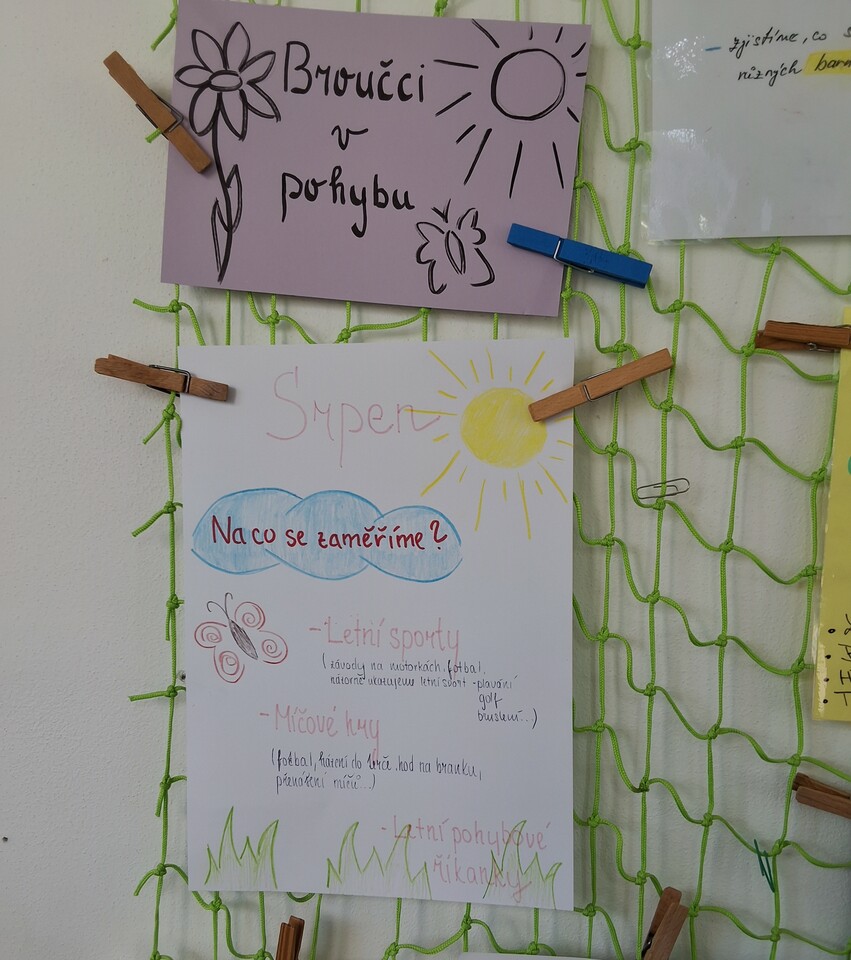 Broučci
v
pohybu
- zjistíme, co s
různých barv
Srpen
Na co se zaměříme?
- Letní sporty
( závody na motorkách, fotbal,
názorně ukazujeme letní sport - plavání
golf
bruslení...)
- Míčové hry
(fotbal, házení do terče, hod na branku,
přenášení míčů...)
- Letní pohybové
říkanky